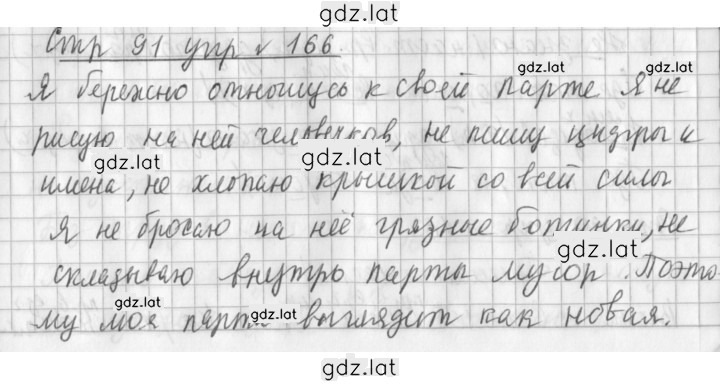 gdz.lat
Стр 91 упр № 166.
gdz.lat gdz.lat
Я бережно отношусь к своей парте Я не
рисую на ней человечков, не пишу цифры и
gdz.lat gdz.lat
имена, не хлопаю крышкой со всей силы
Я не бросаю на неё грязные ботинки, не
gdz.lat
складываю внутрь парты мусор. Поэто
gdz.lat gdz.lat gdz.lat
му моя парта выглядит как новая.
gdz.lat